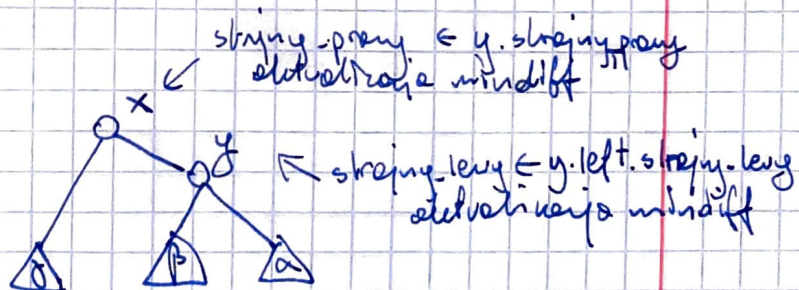 skrajny_prawy ← y.skrajny_prawy
aktualizacja mindiff
x
y
skrajny_lewy ← y.left.skrajny_lewy
aktualizacja mindiff
γ β α